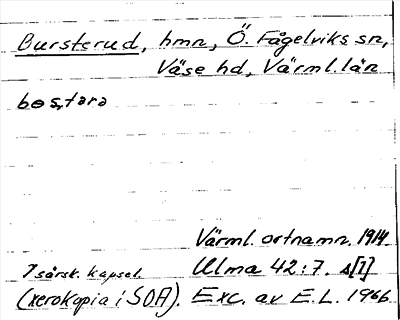 Bursterud, hmn, Ö. Fågelviks sn,
Väse hd, Värml. län
bøs,tərə
Värml. ortnamn. 1914.
I särsk. kapsel. Ulma 42:7. s[1]
(xerokopia i SOA). Exc. av E.L. 1966